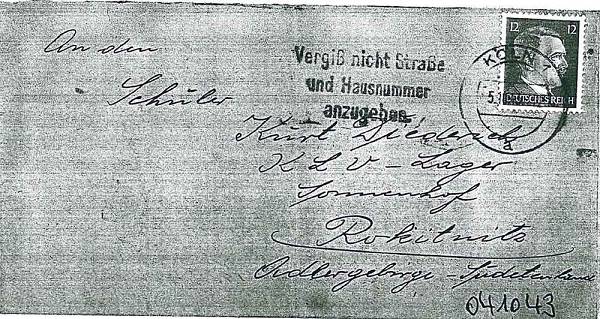 An den
Schüler
Kurt Diederich
K L V - Lager
Sonnenhof
Rokitnitz
Adlergebirge - Sudetenland
Vergiß nicht Straße
und Hausnummer
anzugeben
KÖLN
5.
a
12 12
DEUTSCHES REICH
041043